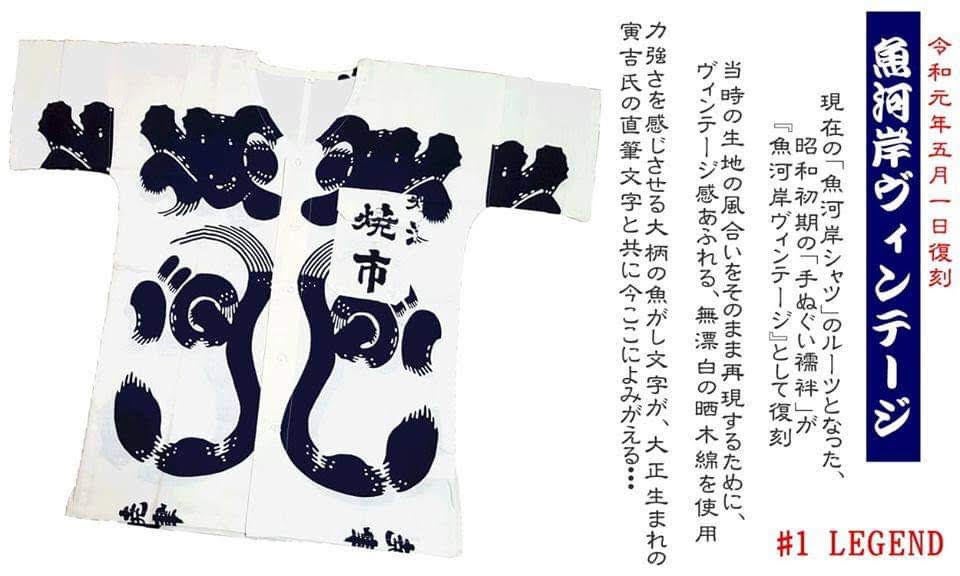 令和元年五月一日復刻
魚河岸ヴィンテージ
現在の「魚河岸シャツ」のルーツとなった、
昭和初期の「手ぬぐい襦袢」が
『魚河岸ヴィンテージ』として復刻
当時の生地の風合いをそのまま再現するために、
ヴィンテージ感あふれる、無漂白の晒木綿を使用
力強さを感じさせる大柄の魚がし文字が、大正生まれの
寅吉氏の直筆文字と共に今ここによみがえる・・・
#1 LEGEND
焼市